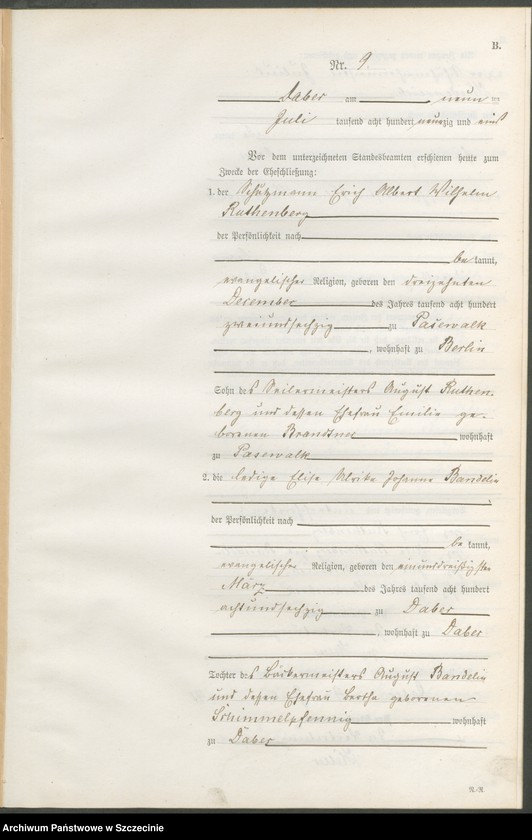 B.
Nr. 9
Daber am neun ten
Juli tausend acht hundert neunzig und eins
Vor dem unterzeichneten Standesbeamten erschienen heute zum
Zwecke der Eheschließung:
1. der Schutzmann Erich Albert Wilhelm
Ruthenberg
der Persönlichkeit nach
be kannt,
evangelischer Religion, geboren den dreizehnten
December des Jahres tausend acht hundert
zweiundsechzig zu Pasewalk
, wohnhaft zu Berlin
Sohn des Seilermeisters August Ruthen-
berg und dessen Ehefrau Emilie ge-
borenen wohnhaft
zu Pasewalk
2. die ledige Elise Ulrike Johanne Bandelin
der Persönlichkeit nach
be kannt,
evangelischer Religion, geboren den einunddreißigsten
März des Jahres tausend acht hundert
achtundsechzig zu Daber
, wohnhaft zu Daber
Tochter des Bäckermeisters August Bandelin
und dessen Ehefrau Bertha geborenen
Schimmelpfennig wohnhaft
zu Daber
Archiwum Państwowe w Szczecinie